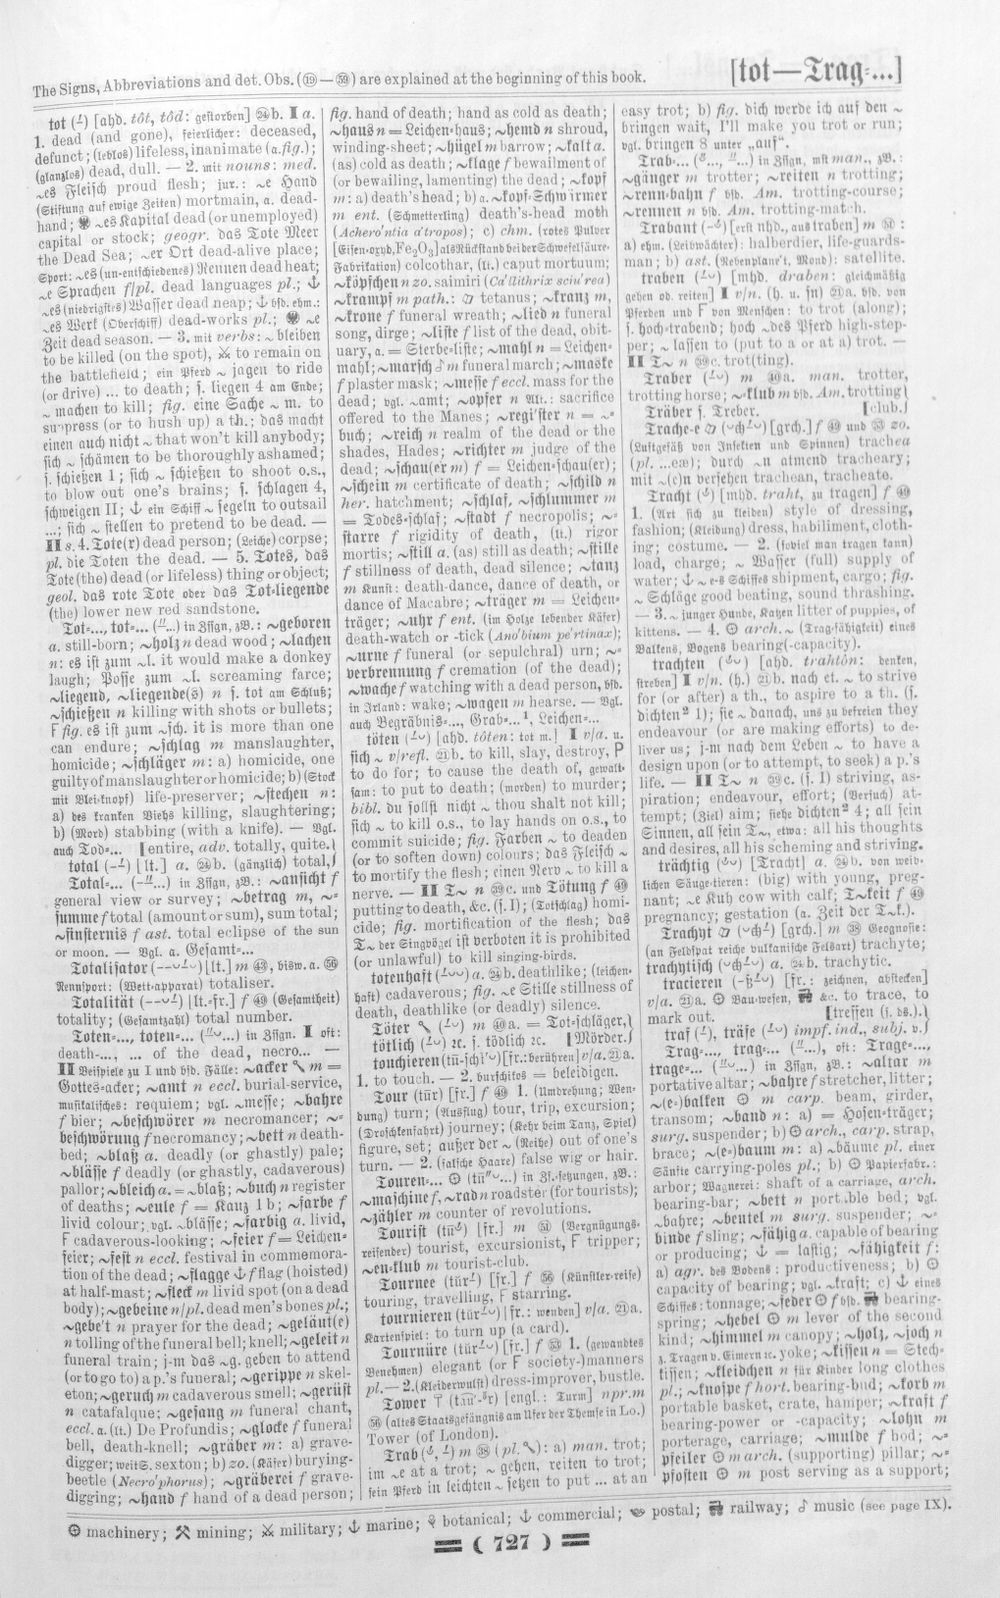 The Signs, Abbreviations and det. Obs. (⑲—㊾) are explained at the beginning of this book.
[tot—Trag=...]
tot (–́) [ahd. tôt, tôd: gestorben] ㉔b. I a.
1. dead (and gone), feierlicher: deceased,
defunct; (leblos) lifeless, inanimate (a. fig.);
(glanzlos) dead, dull. — 2. mit nouns: med.
~es Fleisch proud flesh; jur.: ~e Hand
(Stiftung auf ewige Zeiten) mortmain, a. dead-
hand; ~es Kapital dead (or unemployed)
capital or stock; geogr. das Tote Meer
the Dead Sea; ~er Ort dead-alive place;
Sport: ~es (un-entschiedenes) Rennen dead heat;
~e Sprachen f/pl. dead languages pl.; ⚓
~es (niedrigstes) Wasser dead neap; ⚓ bsd. ehm.:
~es Werk (Oberschiff) dead-works pl.; ~e
Zeit dead season. — 3. mit verbs: ~ bleiben
to be killed (on the spot), ⚔ to remain on
the battlefield; ein Pferd ~ jagen to ride
(or drive) ... to death; s. liegen 4 am Ende;
~ machen to kill; fig. eine Sache ~ m. to
suppress (or to hush up) a th.; das macht
einen auch nicht ~ that won't kill anybody;
sich ~ schämen to be thoroughly ashamed;
s. schießen 1; sich ~ schießen to shoot o.s.,
to blow out one's brains; s. schlagen 4,
schweigen II; ⚓ ein Schiff ~ segeln to outsail
...; sich ~ stellen to pretend to be dead. —
II s. 4. Tote(r) dead person; (Leiche) corpse;
pl. die Toten the dead. — 5. Totes, das
Tote (the) dead (or lifeless) thing or object;
geol. das rote Tote oder das Tot=liegende
(the) lower new red sandstone.
Tot=..., tot=... (–̋...) in Zssgn, zB.: ~geboren
a. still-born; ~holz n dead wood; ~lachen
n: es ist zum ~l. it would make a donkey
laugh; Posse zum ~l. screaming farce;
~liegend, ~liegende(s) n s. tot am Schluß;
~schießen n killing with shots or bullets;
F fig. es ist zum ~sch. it is more than one
can endure; ~schlag m manslaughter,
homicide; ~schläger m: a) homicide, one
guilty of manslaughter or homicide; b) (Stock
mit Blei=knopf) life-preserver; ~stechen n:
a) des kranken Viehs killing, slaughtering;
b) (Mord) stabbing (with a knife). — Vgl.
auch Tod=... [entire, adv. totally, quite.)
total (––́) [lt.] a. ㉔b. (gänzlich) total,)
Total=... (–̋...) in Zssgn, zB.: ~ansicht f
general view or survey; ~betrag m, ~=
summe f total (amount or sum), sum total;
~finsternis f ast. total eclipse of the sun
or moon. — Vgl. a. Gesamt=...
Totalisator (––⌣–́⌣) [lt.] m ㊸, bisw. a. ㊱
Rennsport: (Wett=apparat) totaliser.
Totalität (––⌣–́) [lt.=fr.] f ㊾ (Gesamtheit)
totality; (Gesamtzahl) total number.
Toten=..., toten=... (–̋⌣...) in Zssgn. I oft:
death-..., ... of the dead, necro... —
II Beispiele zu I und bsd. Fälle: ~acker m =
Gottes=acker; ~amt n eccl. burial-service,
musikalisches: requiem; vgl. ~messe; ~bahre
f bier; ~beschwörer m necromancer; ~=
beschwörung f necromancy; ~bett n death-
bed; ~blaß a. deadly (or ghastly) pale;
~blässe f deadly (or ghastly, cadaverous)
pallor; ~bleich a. = ~blaß; ~buch n register
of deaths; ~eule f = Kauz 1b; ~farbe f
livid colour; vgl. ~blässe; ~farbig a. livid,
F cadaverous-looking; ~feier f = Leichen=
feier; ~fest n eccl. festival in commemora-
tion of the dead; ~flagge ⚓ f flag (hoisted)
at half-mast; ~fleck m livid spot (on a dead
body); ~gebeine n/pl. dead men's bones pl.;
~gebe't n prayer for the dead; ~geläut(e)
n tolling of the funeral bell; knell; ~geleit n
funeral train; j-m das ~g. geben to attend
(or to go to) a p.'s funeral; ~gerippe n skel-
eton; ~geruch m cadaverous smell; ~gerüst
n catafalque; ~gesang m funeral chant,
eccl. a. (lt.) De Profundis; ~glocke f funeral
bell, death-knell; ~gräber m: a) grave-
digger; weitS. sexton; b) zo. (Käfer) burying-
beetle (Necro'phorus); ~gräberei f grave-
digging; ~hand f hand of a dead person;
fig. hand of death; hand as cold as death;
~haus n = Leichen=haus; ~hemd n shroud,
winding-sheet; ~hügel m barrow; ~kalt a.
(as) cold as death; ~klage f bewailment of
(or bewailing, lamenting) the dead; ~kopf
m: a) death's head; b) a. ~kopf=Schwärmer
m ent. (Schmetterling) death's-head moth
(Achero'ntia a'tropos); c) chm. (rotes Pulver
[Eisen=oxyd, Fe₂O₃] als Rückstand bei der Schwefelsäure=
Fabrikation) colcothar, (lt.) caput mortuum;
~köpfchen n zo. saimiri (Ca'llithrix sciu'rea)
~krampf m path.: tetanus; ~kranz m,
~krone f funeral wreath; ~lied n funeral
song, dirge; ~liste f list of the dead, obit-
uary, a. = Sterbe=liste; ~mahl n = Leichen=
mahl; ~marsch ♪ m funeral march; ~maske
f plaster mask; ~messe f eccl. mass for the
dead; vgl. ~amt; ~opfer n Alt.: sacrifice
offered to the Manes; ~regi'ster n = ~=
buch; ~reich n realm of the dead or the
shades, Hades; ~richter m judge of the
dead; ~schau(er m) f = Leichen=schau(er);
~schein m certificate of death; ~schild n
her. hatchment; ~schlaf, ~schlummer m
= Todes=schlaf; ~stadt f necropolis; ~=
starre f rigidity of death, (lt.) rigor
mortis; ~still a. (as) still as death; ~stille
f stillness of death, dead silence; ~tanz
m Kunst: death-dance, dance of death, or
dance of Macabre; ~träger m = Leichen=
träger; ~uhr f ent. (im Holze lebender Käfer)
death-watch or -tick (Ano'bium pe'rtinax);
~urne f funeral (or sepulchral) urn; ~=
verbrennung f cremation (of the dead);
~wache f watching with a dead person, bsd.
in Irland: wake; ~wagen m hearse. — Vgl.
auch Begräbnis=..., Grab=...¹, Leichen=...
töten (–́⌣) [ahd. tôten: tot m.] I v/a. u.
sich ~ v/refl. ㉑b. to kill, slay, destroy, P
to do for; to cause the death of, gewalt=
sam: to put to death; (morden) to murder;
bibl. du sollst nicht ~ thou shalt not kill;
sich ~ to kill o.s., to lay hands on o.s., to
commit suicide; fig. Farben ~ to deaden
(or to soften down) colours; das Fleisch ~
to mortify the flesh; einen Nerv ~ to kill a
nerve. — II T~ n ㊴c. und Tötung f ㊾
putting to death, &c. (s. I); (Totschlag) homi-
cide; fig. mortification of the flesh; das
T~ der Singvögel ist verboten it is prohibited
(or unlawful) to kill singing-birds.
totenhaft (–́⌣⌣) a. ㉔b. deathlike; (leichen=
haft) cadaverous; fig. ~e Stille stillness of
death, deathlike (or deadly) silence.
Töter (–́⌣) m ㊵a. = Tot=schläger,)
tötlich (–́⌣) ꝛc. s. tödlich ꝛc. [Mörder.)
touchieren (tū-schī'⌣) [fr.: berühren] v/a. ㉑a.
1. to touch. — 2. burschikos = beleidigen.
Tour (tūr) [fr.] f ㊾ 1. (Umdrehung; Wen=
dung) turn; (Ausflug) tour, trip, excursion;
(Droschkenfahrt) journey; (Kehr beim Tanz, Spiel)
figure, set; außer der ~ (Reihe) out of one's
turn. — 2. (falsche Haare) false wig or hair.
Touren=... ⚙ (tū–̋⌣...) in Zs.=setzungen, zB.:
~maschine f, ~rad n roadster (for tourists);
~zähler m counter of revolutions.
Tourist (tū–́) [fr.] m (Vergnügungs=
reisender) tourist, excursionist, F tripper;
~en=klub m tourist-club.
Tournee (tūr–́) [fr.] f (Künstler=reise)
touring, travelling, F starring.
tournieren (tūr–́⌣) [fr.: wenden] v/a. ㉑a.
Kartenspiel: to turn up (a card).
Tournüre (tūr–́⌣) [fr.] f 1. (gewandtes
Benehmen) elegant (or F society-)manners
pl. — 2. (Kleiderwulst) dress-improver, bustle.
Tower (tau'-ᵊr) [engl.: Turm] npr.m
(altes Staatsgefängnis am Ufer der Themse in Lo.)
Tower (of London).
Trab m ㊳ (pl.): a) man. trot;
im ~e at a trot; ~ gehen, reiten to trot;
sein Pferd in leichten ~ setzen to put ... at an
easy trot; b) fig. dich werde ich auf den ~
bringen wait, I'll make you trot or run;
vgl. bringen 8 unter „auf“.
Trab=... in Zssgn, mst man., zB.:
~gänger m trotter; ~reiten n trotting;
~renn=bahn f bsd. Am. trotting-course;
~rennen n bsd. Am. trotting-match.
Trabant (–́) [erst nhd., aus traben] m:
a) ehm. (Leibwächter): halberdier, life-guards-
man; b) ast. (Nebenplane't, Mond): satellite.
traben (–́⌣) [mhd. draben: gleichmäßig
gehen od. reiten] I v/n. (h. u. sn) ㉑a. bsd. von
Pferden und F von Menschen: to trot (along);
s. hoch=trabend; hoch ~des Pferd high-step-
per; ~ lassen to (put to a or at a) trot. —
II T~ n ㊴c. trot(ting).
Traber (–́⌣) m ㊵a. man. trotter,
trotting horse; ~klub m bsd. Am. trotting)
Träber s. Treber. [club.)
Trache=e (⌣ch–́⌣) [grch.] f ㊾ und zo.
(Luftgefäß von Insekten und Spinnen) trachea
(pl. ...eæ); durch ~n atmend tracheary;
mit ~(e)n versehen trachean, tracheate.
Tracht [mhd. traht, zu tragen] f ㊾
1. (Art sich zu kleiden) style of dressing,
fashion; (Kleidung) dress, habiliment, cloth-
ing; costume. — 2. (soviel man tragen kann)
load, charge; ~ Wasser (full) supply of
water; ⚓ ~ e-s Schiffes shipment, cargo; fig.
~ Schläge good beating, sound thrashing.
— 3. ~ junger Hunde, Katzen litter of puppies, of
kittens. — 4. ⚙ arch. ~ (Trag=fähigkeit) eines
Balkens, Bogens bearing(-capacity).
trachten [ahd. trahtôn: denken,
streben] I v/n. (h.) ㉑b. nach et. ~ to strive
for (or after) a th., to aspire to a th. (s.
dichten² 1); sie ~ danach, uns zu befreien they
endeavour (or are making efforts) to de-
liver us; j-m nach dem Leben ~ to have a
design upon (or to attempt, to seek) a p.'s
life. — II T~ n ㊴c. (s. I) striving, as-
piration; endeavour, effort; (Versuch) at-
tempt; (Ziel) aim; siehe dichten² 4; all sein
Sinnen, all sein T~, etwa: all his thoughts
and desires, all his scheming and striving.
trächtig [Tracht] a. ㉔b. von weib=
lichen Säuge=tieren: (big) with young, preg-
nant; ~e Kuh cow with calf; T~keit f ㊾
pregnancy; gestation (a. Zeit der T~k.).
Trachyt (⌣ch–́) [grch.] m ㊳ Geognosie:
(an Feldspat reiche vulkanische Felsart) trachyte;
trachytisch (⌣ch–́⌣) a. ㉔b. trachytic.
tracieren (–ß–́⌣) [fr.: zeichnen, abstecken]
v/a. ㉑a. ⚙ Bau=wesen, &c. to trace, to
mark out. [treffen (s. ds.).)
traf (–́), träfe (–́⌣) impf. ind., subj. v.)
Trag=..., trag=... (–̋...), oft: Trage=...,
trage=... (–̋⌣...) in Zssgn, zB.: ~altar m
portative altar; ~bahre f stretcher, litter;
~(e=)balken ⚙ m carp. beam, girder,
transom; ~band n: a) = Hosen=träger;
surg. suspender; b) ⚙ arch., carp. strap,
brace; ~(e=)baum m: a) ~bäume pl. einer
Sänfte carrying-poles pl.; b) ⚙ Papierfabr.:
arbor; Wagnerei: shaft of a carriage, arch.
bearing-bar; ~bett n portable bed; vgl.
~bahre; ~beutel m surg. suspender; ~=
binde f sling; ~fähig a. capable of bearing
or producing; ⚓ = lastig; ~fähigkeit f:
a) agr. des Bodens: productiveness; b) ⚙
capacity of bearing; vgl. ~kraft; c) ⚓ eines
Schiffes: tonnage; ~feder ⚙ f bsd. bearing-
spring; ~hebel ⚙ m lever of the second
kind; ~himmel m canopy; ~holz, ~joch n
z. Tragen v. Eimern ꝛc. yoke; ~kissen n = Steck=
kissen; ~kleidchen n für Kinder long clothes
pl.; ~knospe f hort. bearing-bud; ~korb m
portable basket, crate, hamper; ~kraft f
bearing-power or -capacity; ~lohn m
porterage, carriage; ~mulde f hod; ~=
pfeiler ⚙ m arch. (supporting) pillar; ~=
pfosten ⚙ m post serving as a support;
⚙ machinery; ⚒ mining; ⚔ military; ⚓ marine; botanical; commercial; postal; railway; ♪ music (see page IX).
( 727 )